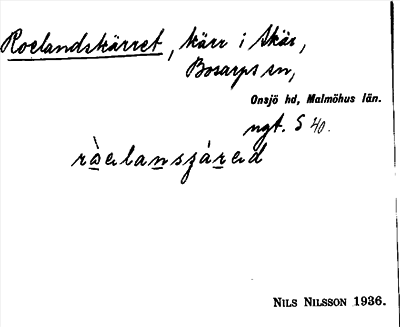 Roelandskärret, kärr i Skäs,
Bosarps sn,
Onsjö hd, Malmöhus län.
ngt. S 40.
NILS NILSSON 1936.